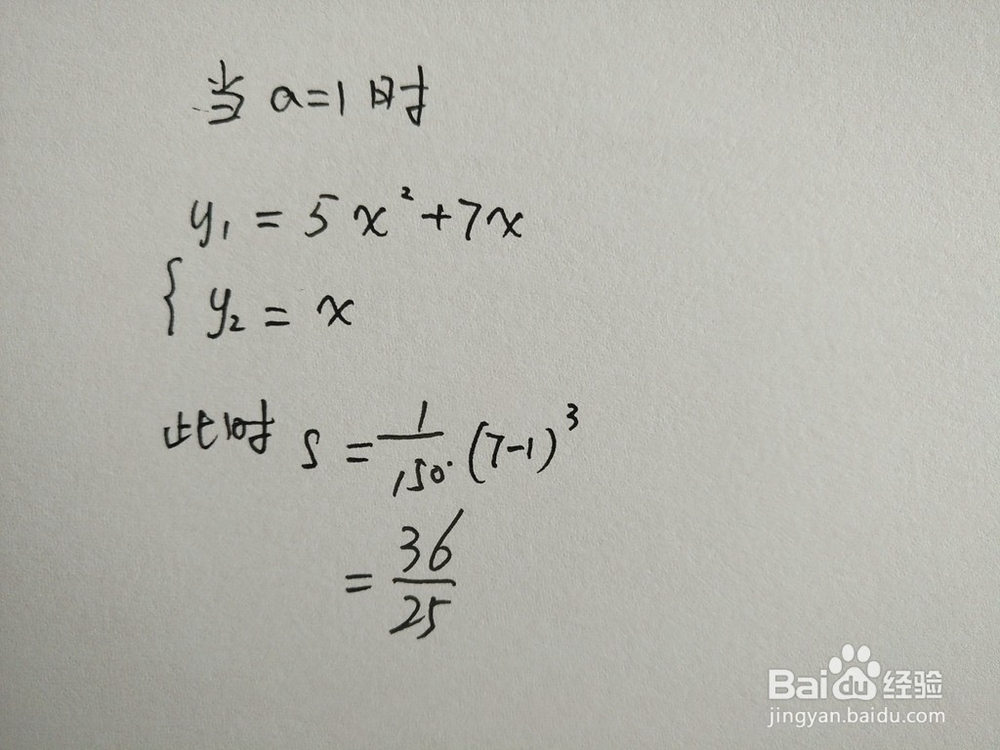 当a=1时
y₁=5x²+7x
{y₂=x
此时 S=1/150(7-1)³
=36/25
Baidu经验
jingyan.baidu.com